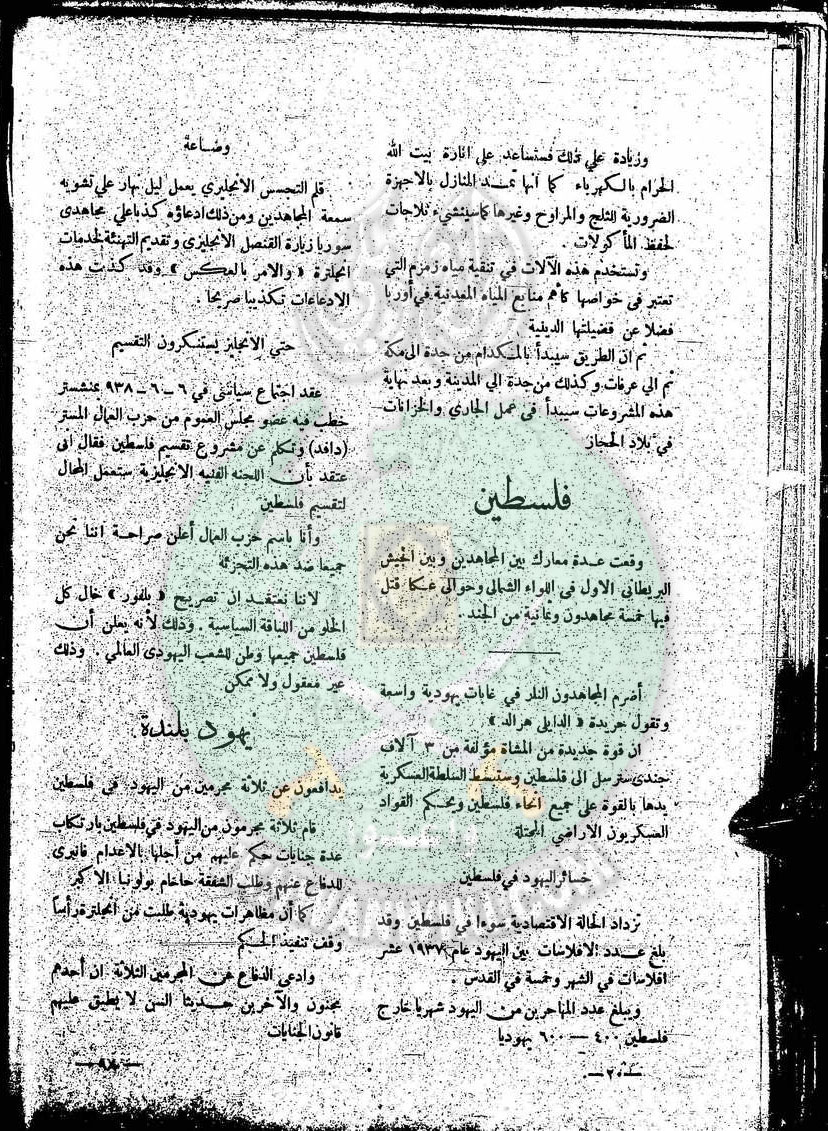 وزيادة علي ذلك فستساعد علي انارة بيت الله
الحرام بالكهرباء كما انها تمد المنازل بالاجهزة
الضرورية للثلج والمراوح وغيرها كما سينشيء ثلاجات
لحفظ المأكولات .
وتستخدم هذه الآلات في تنقية مياه زمزم التي
تعتبر في خواصها كأهم منابع المياه المعدنية في أوربا
فضلا عن فضيلتها الدينية
ثم ان الطريق سيبدأ بالمكدام من جدة الى مكة
ثم الي عرفات وكذلك من جدة الي المدينة وبعد نهاية
هذه المشروعات سيبدأ في عمل المجاري والخزانات
في بلاد الحجاز
فلسطين
وقعت عدة معارك بين المجاهدين وبين الجيش
البريطاني الاول في اللواء الشمالى وحوالى عكا قتل
فيها خمسة مجاهدون وثمانية من الجند .
أضرم المجاهدون النار في غابات يهودية واسعة
وتقول جريدة « الدايلى هرالد »
ان قوة جديدة من المشاة مؤلفة من ٣ آلاف
جندى سترسل الى فلسطين وستبسط السلطة العسكرية
يدها بالقوة على جميع انحاء فلسطين ويحكم القواد
العسكريون الاراضي المحتلة
خسائر اليهود في فلسطين
تزداد الحالة الاقتصادية سوءا في فلسطين وقد
بلغ عدد الافلاسات بين اليهود عام ١٩٣٧ عشر
افلاسات في الشهر وخمسة في القدس .
ويبلغ عدد المهاجرين من اليهود شهريا خارج
فلسطين ٤٠٠ — ٦٠٠ يهوديا
— ٢٠ —
وضاعة
قلم التجسس الانجليزي يعمل ليل نهار علي تشويه
سمعة المجاهدين ومن ذلك ادعاؤه كذبا علي مجاهدى
سوريا زيارة القنصل الانجليزى وتقديم التهنئة لخدمات
انجلترة « والامر بالعكس » وقد كذبت هذه
الادعاءات تكذيبا صريحا .
حتي الانجليز يستنكرون التقسيم
عقد اجتماع سياسي في ٦ — ٦ — ٩٣٨ بمنشستر
خطب فيه عضو مجلس العموم من حزب العمال المستر
(دافد) وتكلم عن مشروع تقسيم فلسطين فقال انى
عتقد بأن اللجنه الفنيه الانجليزية ستعمل المحال
لتقسيم فلسطين
وأنا باسم حزب العمال أعلن صراحة اننا نحن
جميعا ضد هذه التجزئة
لاننا نعتقد ان تصريح « بلفور » خال كل
الخلو من اللباقة السياسية . وذلك لأنه يعلن أن
فلسطين جميعها وطن للشعب اليهودى العالمي . وذلك
غير معقول ولا ممكن
يهود بلندة
يدافعون عن ثلاثة مجرمين من اليهود في فلسطين
قام ثلاثة مجرمون من اليهود في فلسطين بارتكاب
عدة جنايات حكم عليهم من أجلها بالاعدام فانبرى
للدفاع عنهم وطلب الشفقة حاخام بولونيا الاكبر
كما أن مظاهرات يهودية طلبت من انجلترة رأسا
وقف تنفيذ الحكم
وادعى الدفاع عن المجرمين الثلاثة ان أحدهم
مجنون والآخرين حديثا السن لا يطبق عليهم
قانون الجنايات
وأعدوا